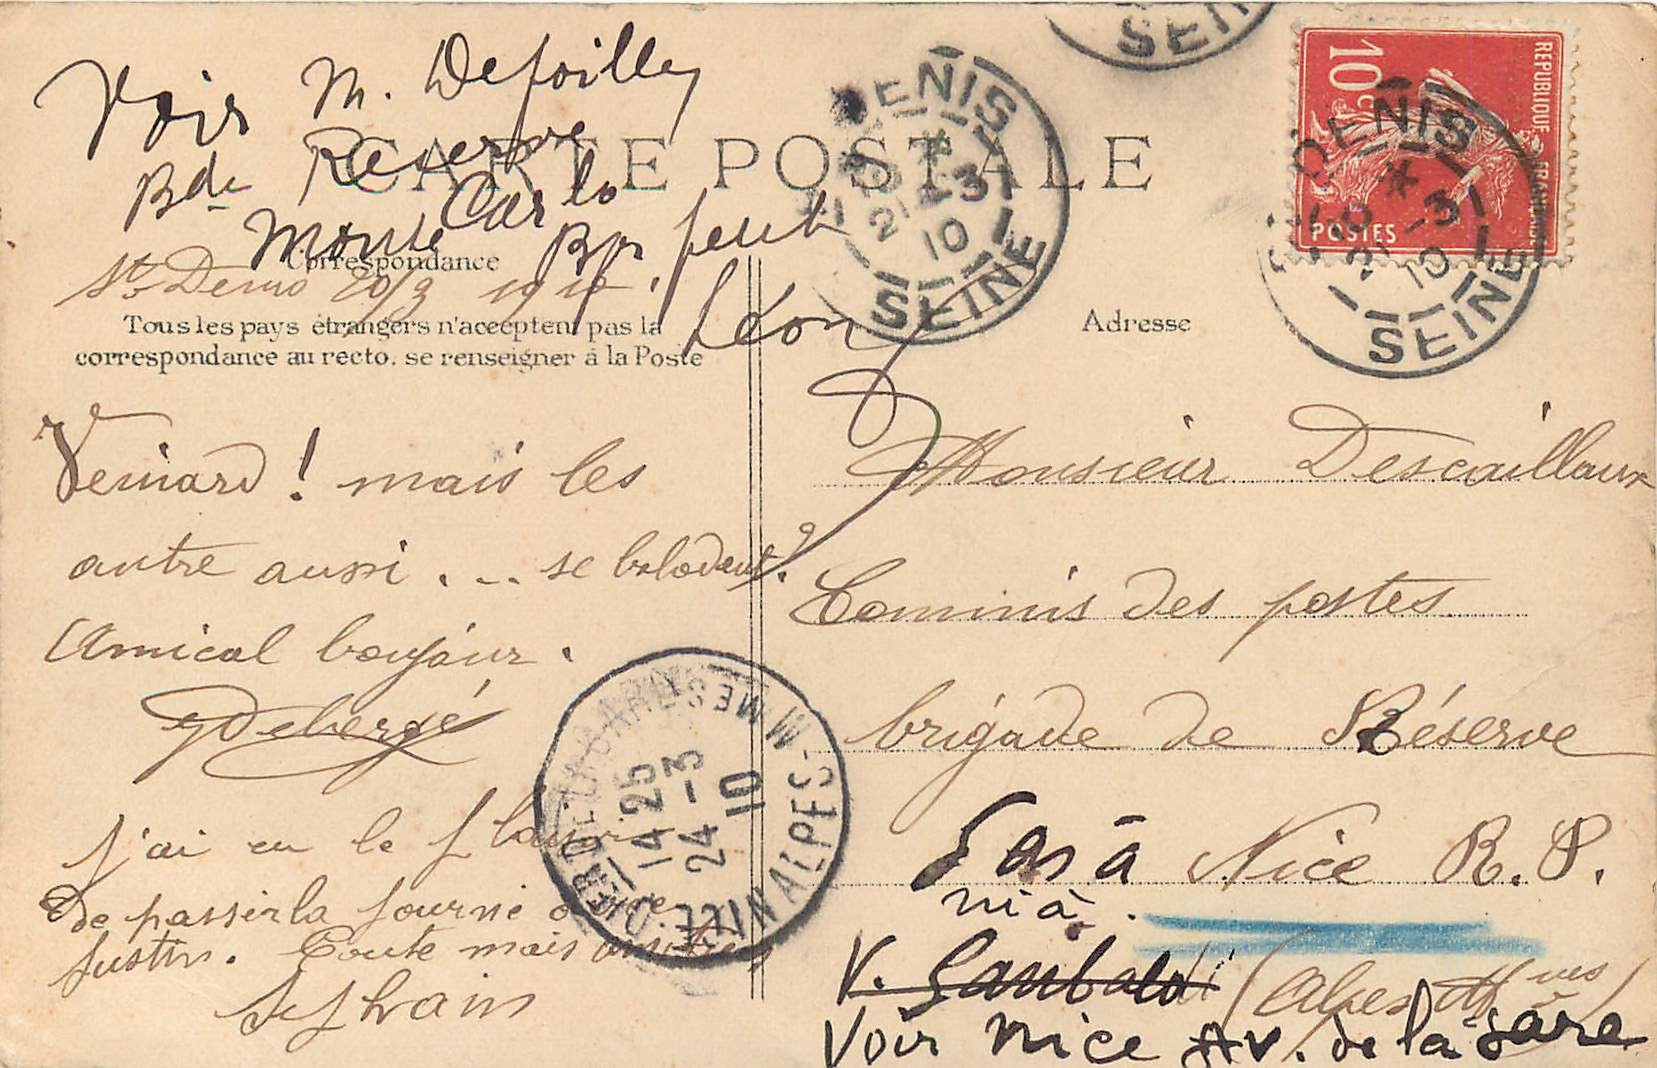 Voir M. Defoilley
CARTE POSTALE
Reserve
Bde
Monte Carlo
Bon pour
Léon
Correspondance
St Denis 20/3 1910.
Tous les pays étrangers n'acceptent pas la
correspondance au recto. se renseigner à la Poste
Adresse
REPUBLIQUE FRANÇAISE
10c
POSTES
ST DENIS
21 -3
10
SEINE
ST DENIS
21 -3
10
SEINE
SEINE
Veinard ! mais les
autre aussi . . . se baladent ?
Amical bonjour .
Debergé
j'ai eu le plaisir
de passer la journé avec
Justin. Toute mais amitiés
Sylvain
NICE ALPES-MMES
14 25
24 -3
10
Monsieur Descaillaux
Commis des postes
brigade de Réserve
Pas à Nice R. P.
ni à
V. Garibaldi (Alpes Mmes)
Voir Nice Av. de la Gare